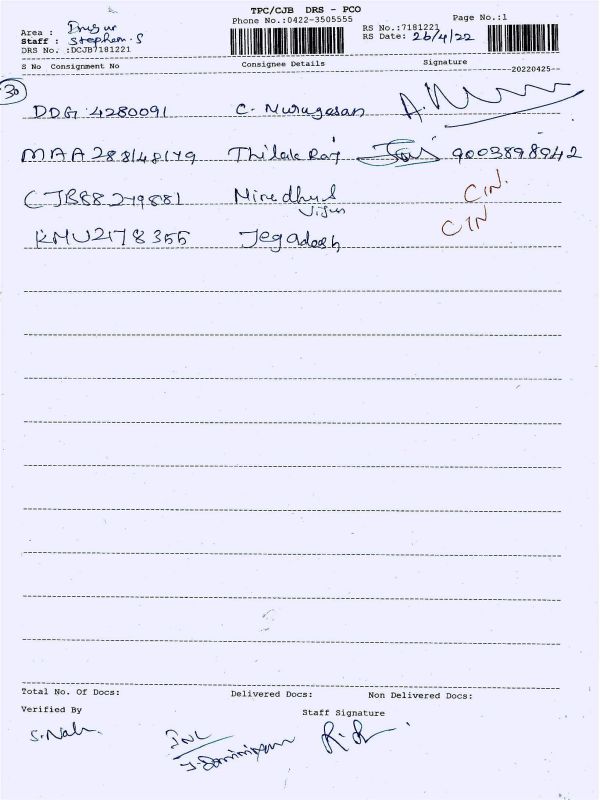 TPC/CJB DRS - PCO
Phone No.:0422-3505555
Page No.:1
Area : Irugur
Staff : Stephen.S
DRS No. :DCJB7181221
RS No.:7181221
RS Date: 26/4/22
S No Consignment No Consignee Details Signature
--20220425--
30
DDG 4280091 C. Murugasan
MAA288148149 Thilak Raj 9003898942
CJB88279881 CIN.
KMU2178355 Jegadesh CIN
Total No. Of Docs: Delivered Docs: Non Delivered Docs:
Verified By Staff Signature